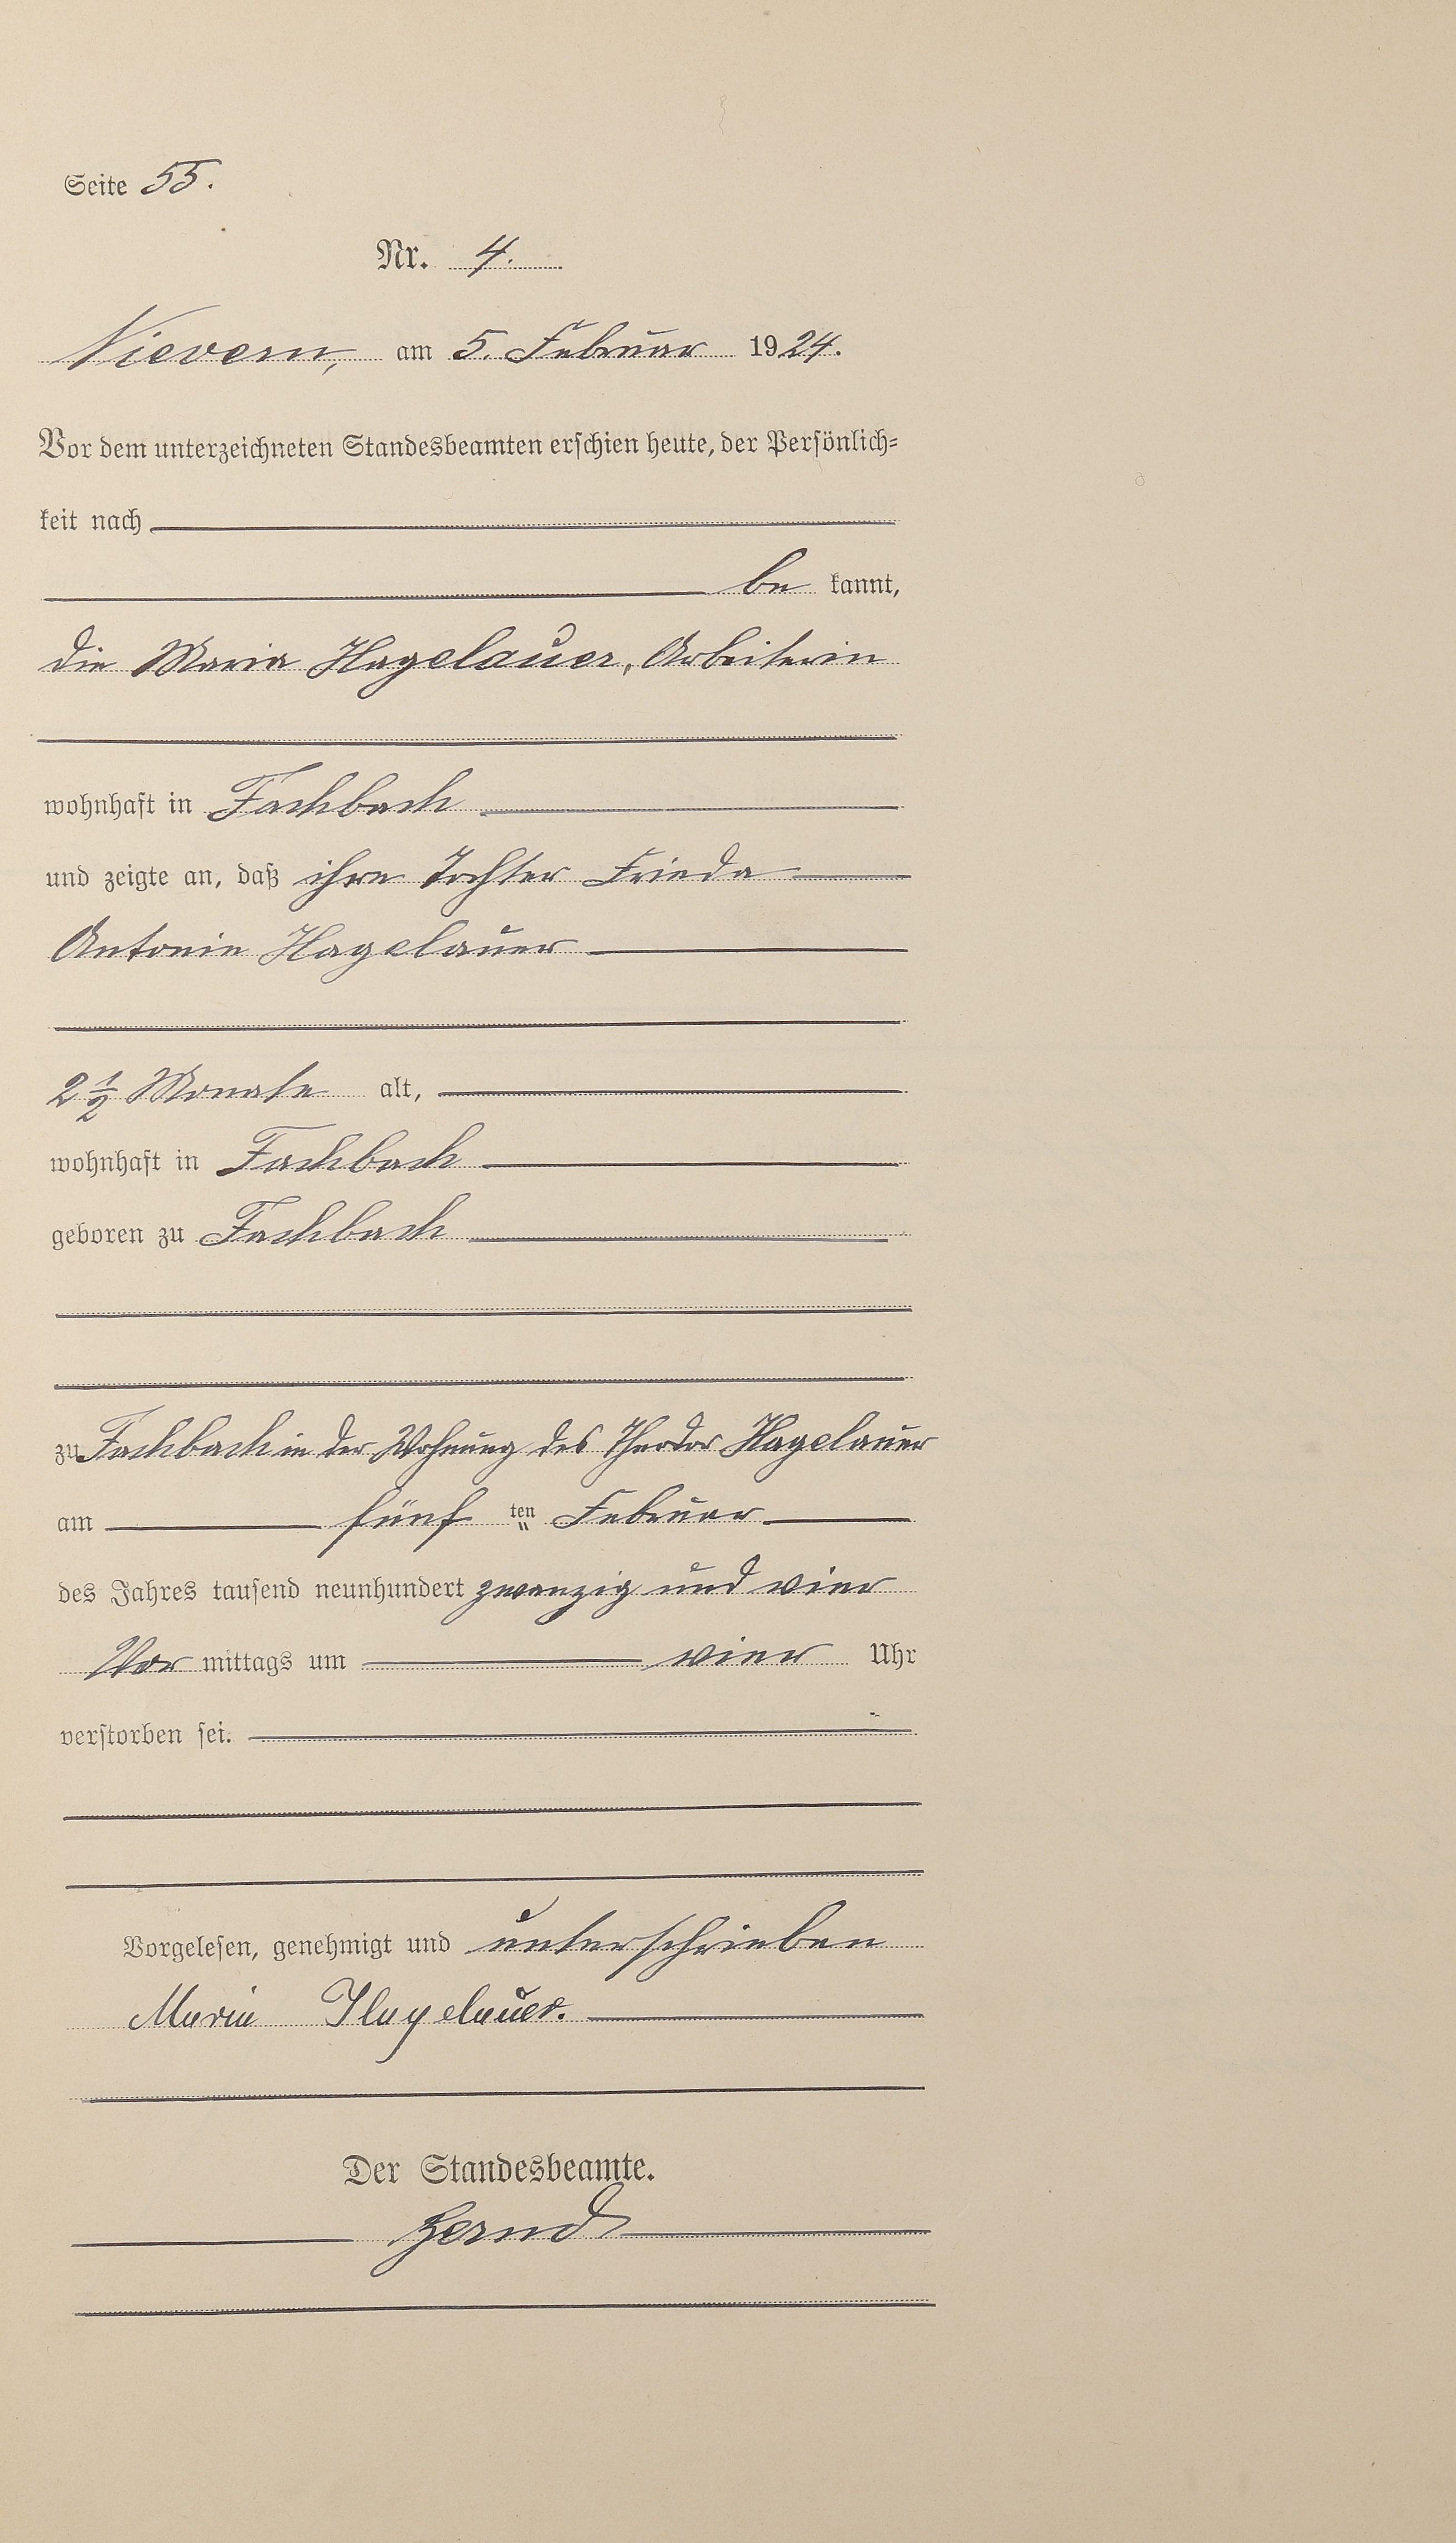 Seite 55.
Nr. 4.
Nievern, am 5. Februar 1924.
Vor dem unterzeichneten Standesbeamten erschien heute, der Persönlich-
keit nach
be kannt,
die Maria Hagelauer, Arbeiterin
wohnhaft in Fachbach
und zeigte an, daß ihre Tochter Frieda
Antonie Hagelauer
2 1/2 Monate alt,
wohnhaft in Fachbach
geboren zu Fachbach
zu Fachbach in der Wohnung des Theodor Hagelauer
am fünf ten Februar
des Jahres tausend neunhundert zwanzig und vier
Vor mittags um vier Uhr
verstorben sei.
Vorgelesen, genehmigt und unterschrieben
Maria Hagelauer.
Der Standesbeamte.